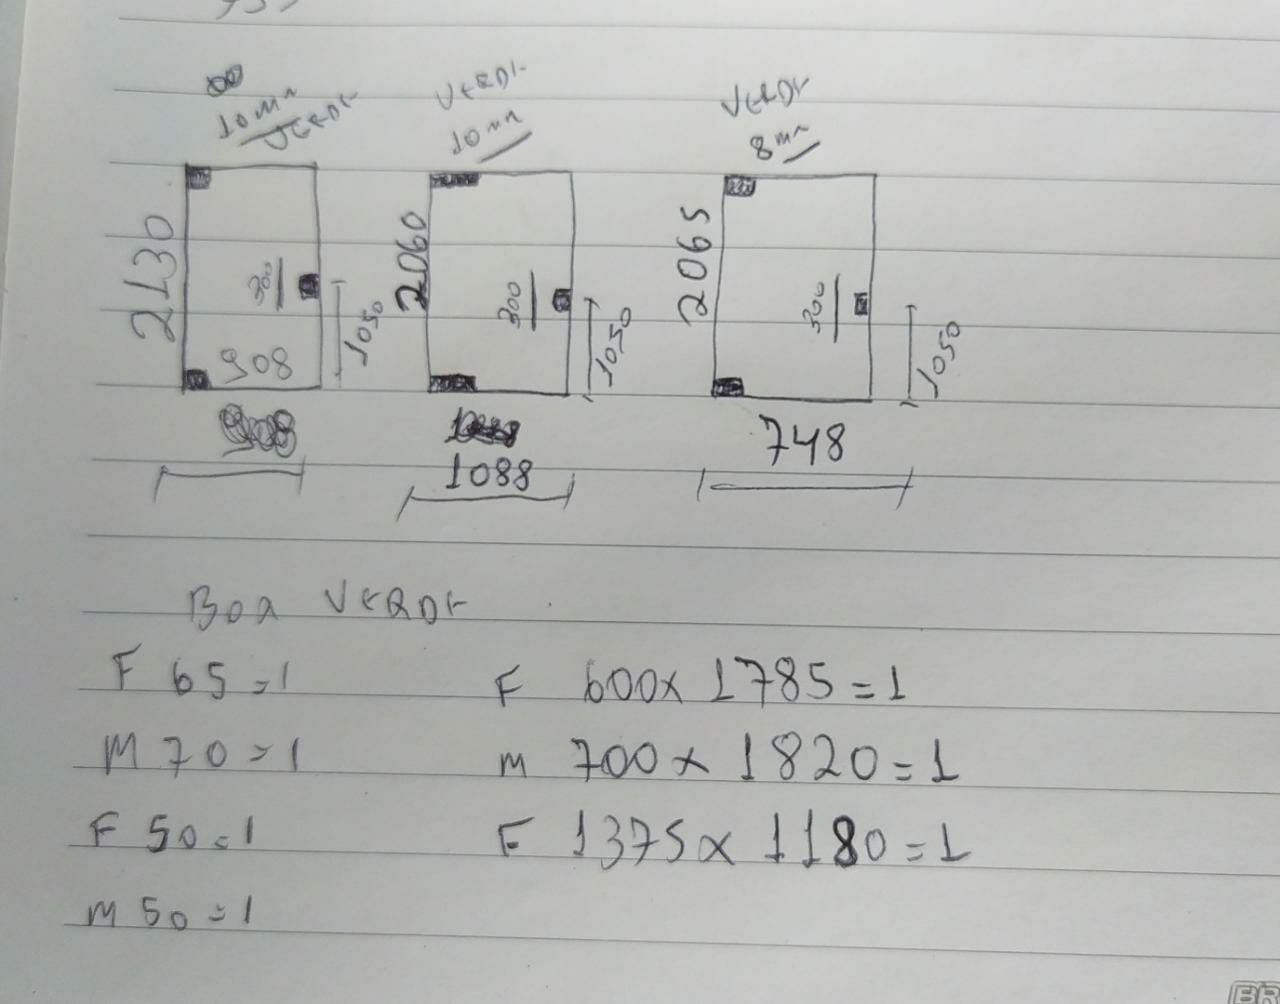 10mm VERDE
VERDE
10mm
VERDE
8mm
2130
300
1050
908
2060
300
1050
1088
2065
300
1050
748
BOX VERDE
F 65=1
M 70=1
F 50=1
M 50=1
F 600x1785=1
M 700x1820=1
F 1375x1180=1
BR